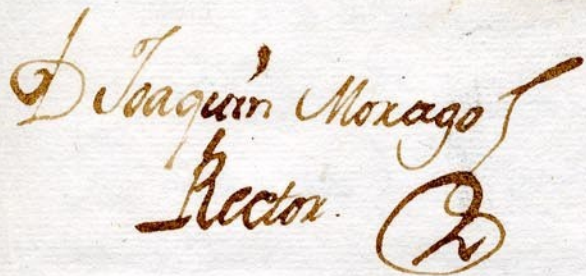 D Joaquin Moxago
Rector.